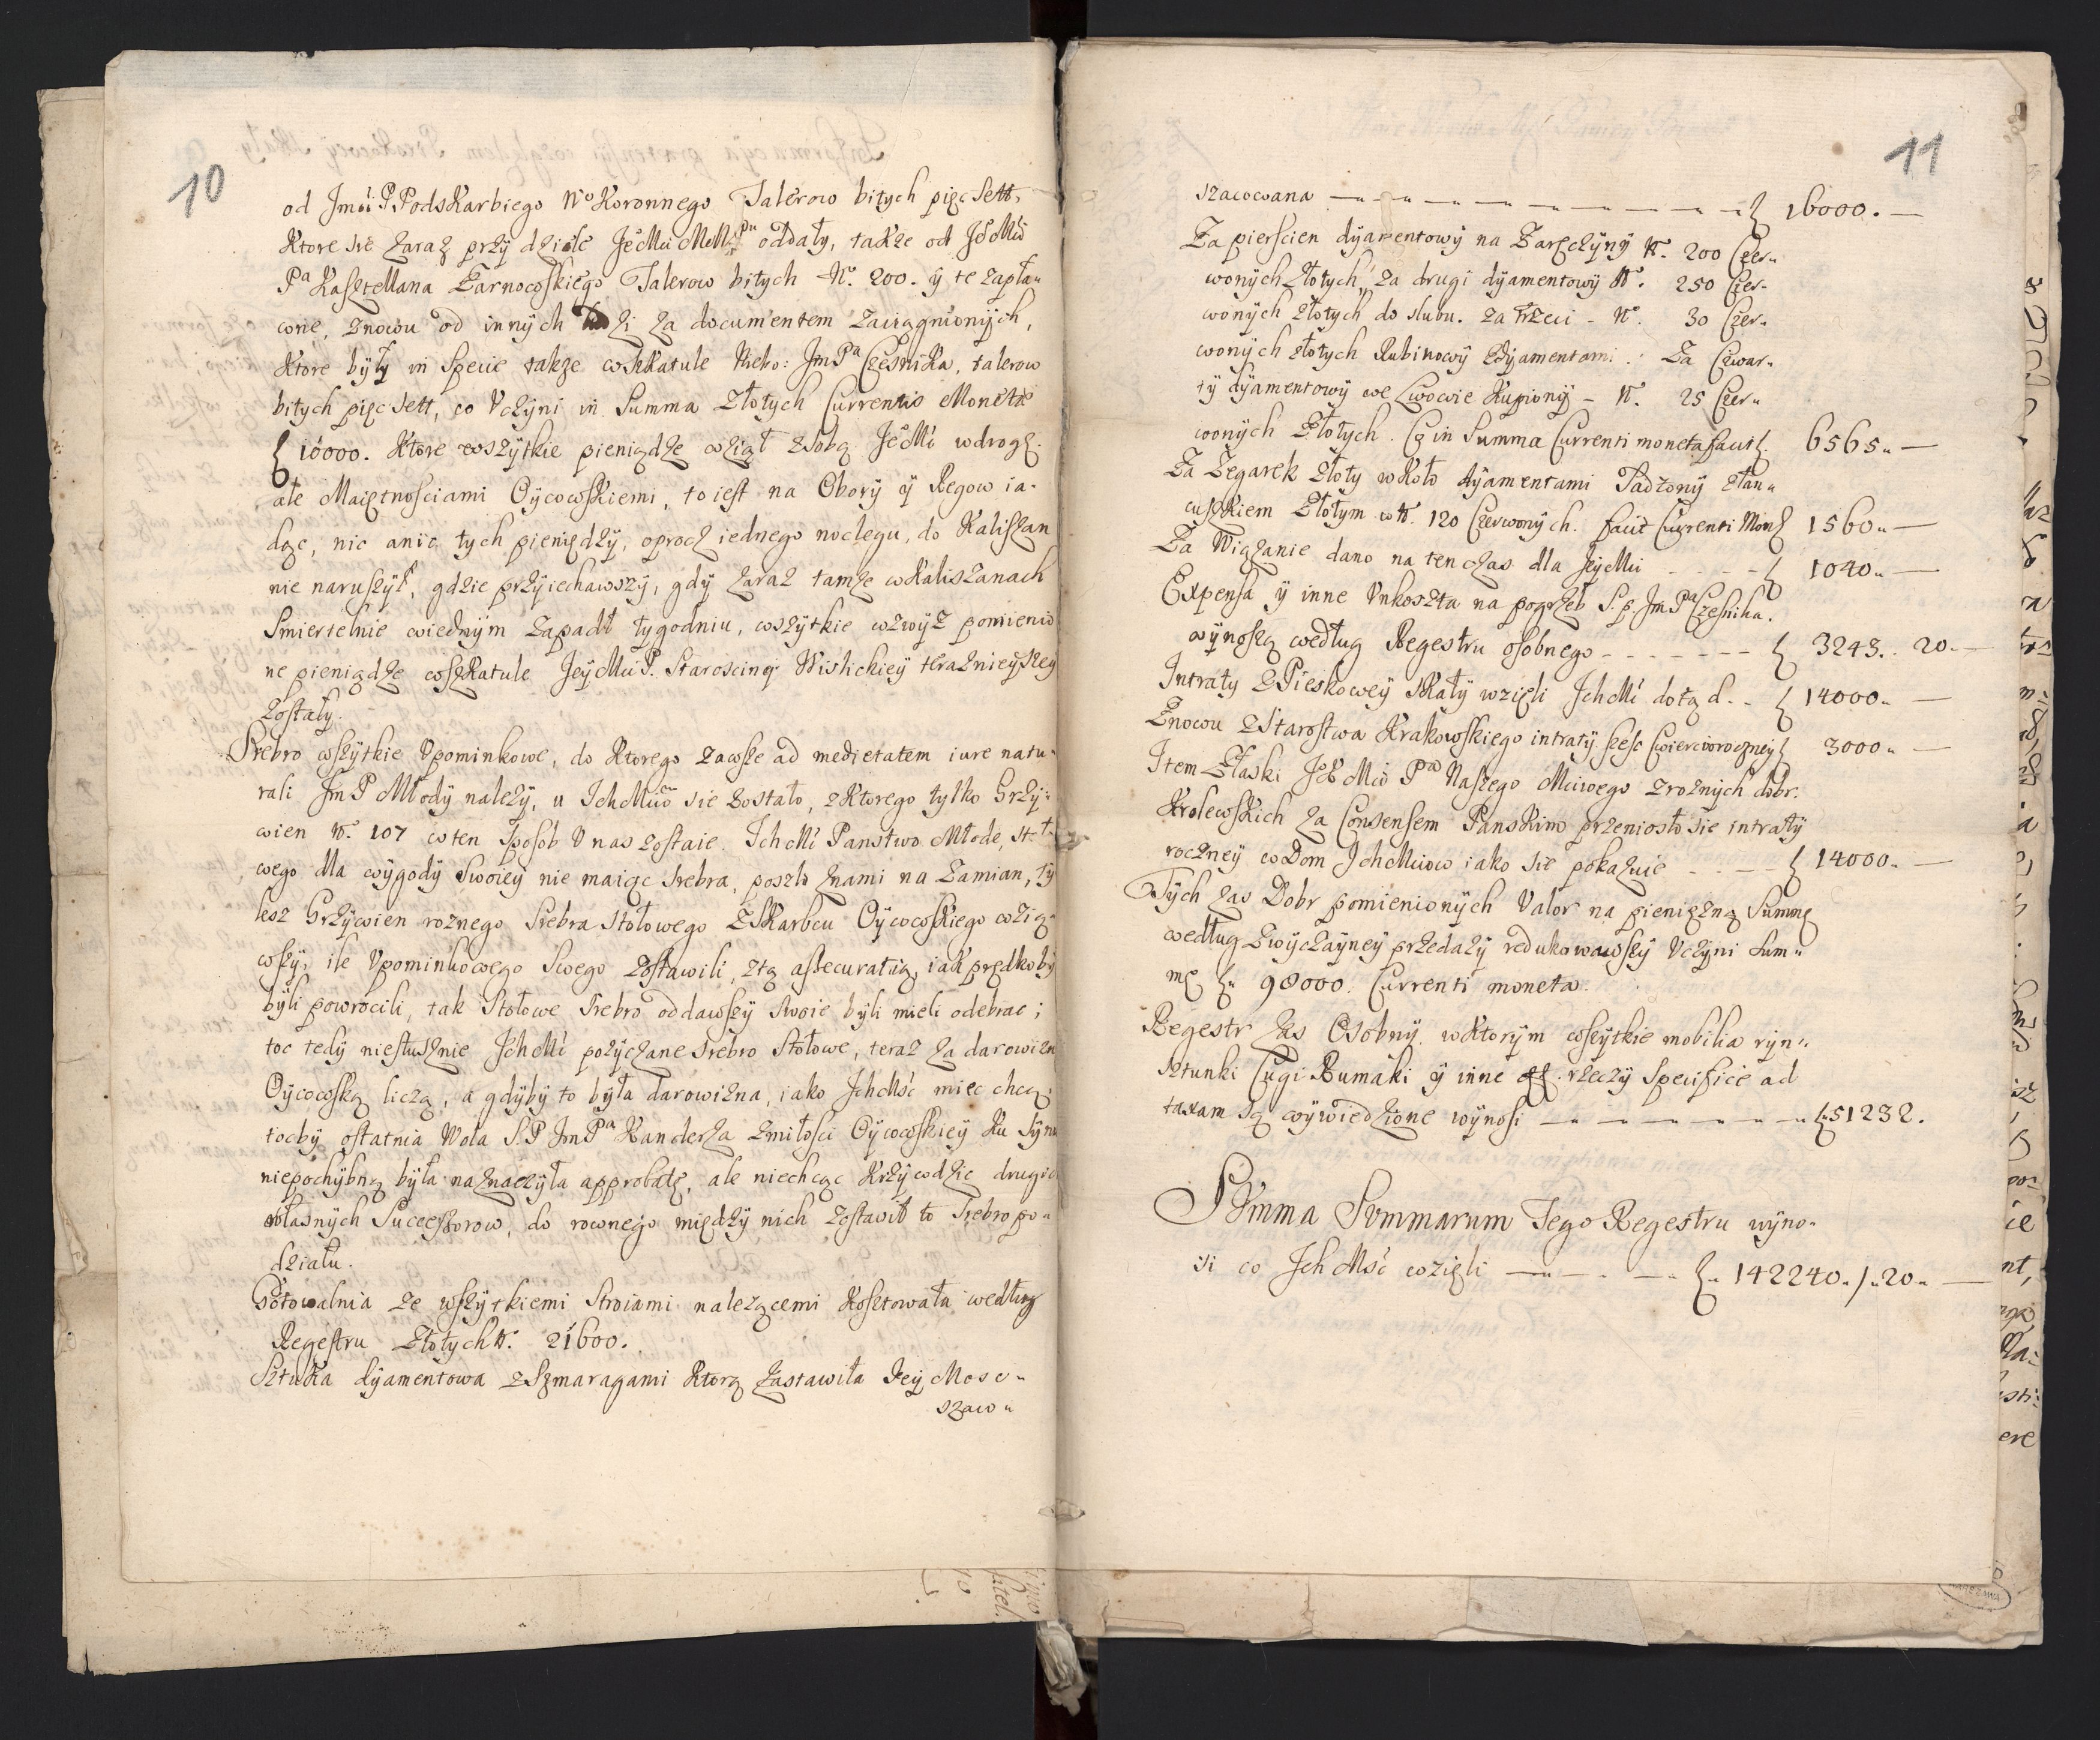 10
od Jmći P. Podskarbiego Wo Koronnego Talerow bitych pięc sett,
Ktore sie zaraz przy dziale JeoMci oddały, także od JeoMci
Pa Kasztellana Zarnowskiego Talerow bitych No. 200. ÿ te zapła„
cone, znowu od innych za documentem zaciągnionÿch,
Ktore bÿłÿ in specie także w szkatule Nieb: Jm Pa Czesnika, talerow
bitych pięc sett, co Vczÿni in Summa Złotych Currentis Monetæ
10000. Ktore wszÿtkie pieniądze wziął z sobą JeMć w drogę.
ale Maiętnosciami Oÿcowskiemi, to iest na Oborÿ ÿ Regow ia-
dąc, nic a nic tych pieniędzÿ, oprocz iednego noclegu, do Kaliszan
nie naruszÿł, gdzie przÿiechawszÿ, gdÿ zaraz tamże w Kaliszanach
Smiertelnie w iednÿm zapadł tÿgodniu, wszÿtkie wzwÿż pomienio
ne pieniądze w szkatule JeÿMci P. Starosciny Wislickieÿ teraznieÿszeÿ
zostałÿ.
Srebro wszÿtkie Vpominkowe, do Ktorego zawsze ad medietatem iure natu„
rali Jm P Młodÿ należÿ, u IchMciow sie zostało, z Ktorego tÿlko Grzÿ„
wien N. 107 w ten sposob V nas zostaie. IchMć Panstwo Młode, sto
wego dla wÿgodÿ Swoieÿ nie maiąc srebra, poszło z nami na Zamian, tÿ
lesz Grzÿwien roznego Srebra stołowego z Skarbcu Oÿcowskiego wzią„
wszÿ, ile Vpominkowego Swego zostawili, z tą assecuratią, iak prędko bÿ
bÿli powrocili, tak Stołowe Srebro oddawszÿ swoie bÿli mieli odebrac;
toc tedÿ niesłusznie IchMć pożÿczane srebro Stołowe, teraz za darowizn
Oÿcowską liczą, a gdÿbÿ to bÿła darowizna, iako IchMść miec chcą,
tocbÿ ostatnia Wola S.P Jm Pa Kanclerza z miłosci Oÿcowskieÿ Ku Sÿn
niepochÿbną bÿła naznaczÿła approbatę, ale niechcąc Krzÿwdzic drugic
własnÿch Successorow, do rownego międzÿ nich zostawił to Srebro po„
działu.
Gotowalnia ze wszÿtkiemi Stroiami nalezącemi Kosztowała według
Regestru Złotÿch N. 21600.
Sztuka dÿamentowa z Szmaragami Ktorą zastawiła Jeÿ Mosc„
szaco„
11
szacowana 16000. —
Za pierscien dÿamentowÿ na Zaręczÿnÿ No. 200 Czer„
wonÿch Złotych, za drugi dÿamentowÿ No. 250 Czer-
wonÿch Złotych do slubu. za trzeci - No. 30 Czer„
wonÿch złotych Rubinowÿ z dÿamentami. Za Czwar„
tÿ dÿamentowÿ we Lwowie Kupionÿ - No. 25 Czer„
wonÿch Złotych. Co in Summa Currenti moneta facit 6565„ —
Za Zegarek Złotÿ w Koło dÿamentami Sadzonÿ z łan„
cuszkiem Złotÿm w No. 120 Czerwonÿch. facit Currenti Mon 1560„ —
Za Wiązanie dano na ten czas dla JeÿMci 1040„ —
Expensa ÿ inne Vnkoszta na pogrzeb S.p. Jm Pa Czesnika.
wÿnoszą według Regestru osobnego 3243. 20. —
Intratÿ z Pieskoweÿ Skałÿ wzięli IchMć dotąd 14000„ —
Znowu z Starostwa Krakowskiego intratÿ szesc Cwiercioroczneÿ 3000„ —
Item z Łaski Pa Naszego Mciwego z roznych dobr.
Krolewskich za Consensem Panskim przeniosło sie intratÿ
roczneÿ w Dom IchMciow iako sie pokazuie 14000„ —
Tÿch zas Dobr pomienionÿch Valor na pieniężną Summę
według zwÿczaÿneÿ przedażÿ redukowawszÿ Vczÿni sum„
mę 98000. Currenti moneta.
Regestr zas Osobnÿ w Ktorÿm wszÿtkie mobilia rÿn„
sztunki Cugi Rumaki ÿ inne rzeczÿ specifice ad
taxam są wÿwiedzione wÿnosi 51232.
Summa Summarum Tego Regestru wÿno-
si co IchMść wzięli 142240„/„20„ —